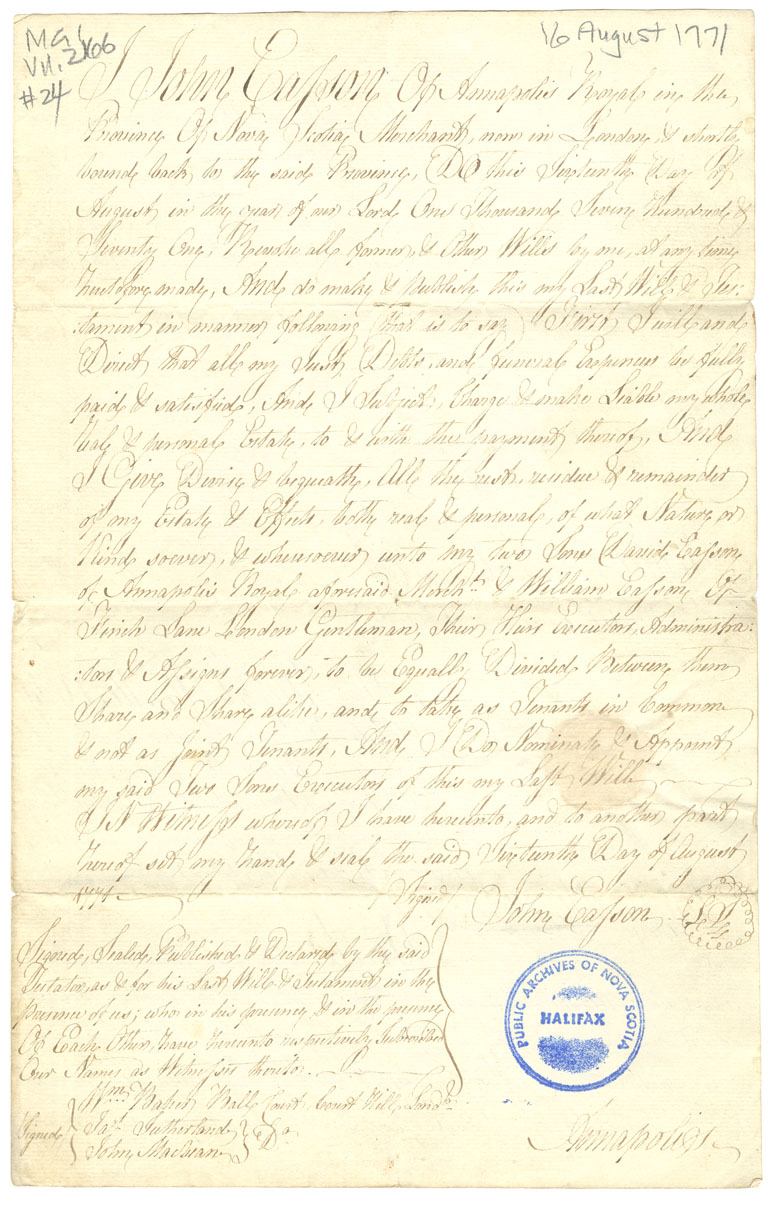 MG1
Vol. 2166
#24
16 August 1771
I John Easson Of Annapolis Royal in the
Province Of Nova Scotia Merchant, now in London & shortly
bound back to the said Province, DO this Sixteenth Day Of
August in the year of our Lord One Thousand Seven Hundred &
Seventy One, Revoke all former & Other Wills by me, at any time
heretofore made, And do make & publish this my Last Will & Tes:
:tament in manner following that is to say First I will and
Direct that all my Just Debts, and funeral Expences be fully
paid & satisfied, And I Subject, Charge & make Liable my whole
real & personal Estate, to & with the payment thereof, And
I Give Devise & bequeath, All the rest, residue & remainder
of my Estate & Effects, both real & personal, of what Nature or
Kind soever, & wheresoever unto my two Sons David Easson
of Annapolis Royal aforesaid Mercht & William Easson Of
Finch Lane London Gentleman, Their Heirs Executors, Administra:
:tors & Assigns forever, to be Equally Divided Between them
Share and Share alike, and to take as Tenants in Common
& not as Joint Tenants, And I Do Nominate & Appoint
my said Two Sons Executors of this my Last Will
IN Witness whereof I have hereunto, and to another part
hereof set my hand & seal the said Sixteenth Day of August
1771 (Signed) John Easson LS
Signed, Sealed, Published & Declared by the said
Testator, as & for his Last Will & Testament, in the
presence of us; who in his presence, & in the presence
Of Each Other, have hereunto respectively subscribed
Our Names as Witnesses thereto
Wm Court Lond
Signed Jas Sutherland Do
John
PUBLIC ARCHIVES OF NOVA SCOTIA
HALIFAX
Annapolis